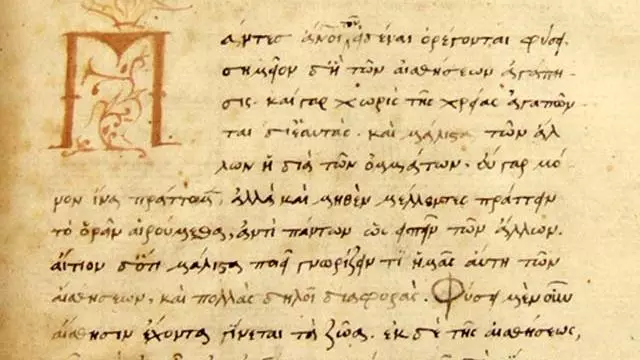 Πάντες ἄνοι τοῦ εἰδέναι ὀρέγονται φύσει·
σημεῖον δ' ἡ τῶν αἰσθήσεων ἀγάπη-
σις· καὶ γὰρ χωρὶς τῆς χρείας ἀγαπῶν-
ται δι' ἑαυτάς· καὶ μάλιστα τῶν ἄλ-
λων ἡ διὰ τῶν ὀμμάτων· οὐ γὰρ μό-
νον ἵνα πράττωμεν, ἀλλὰ καὶ μηθὲν μέλλοντες πράττειν
τὸ ὁρᾶν αἱρούμεθα, ἀντὶ πάντων ὡς εἰπεῖν τῶν ἄλλων.
αἴτιον δ' ὅτι μάλιστα ποιεῖ γνωρίζειν τὶ ἡμᾶς αὕτη τῶν
αἰσθήσεων, καὶ πολλὰς δηλοῖ διαφοράς. Φύσει μὲν οὖν
αἴσθησιν ἔχοντα γίνεται τὰ ζῶα. ἐκ δὲ τῆς αἰσθήσεως,